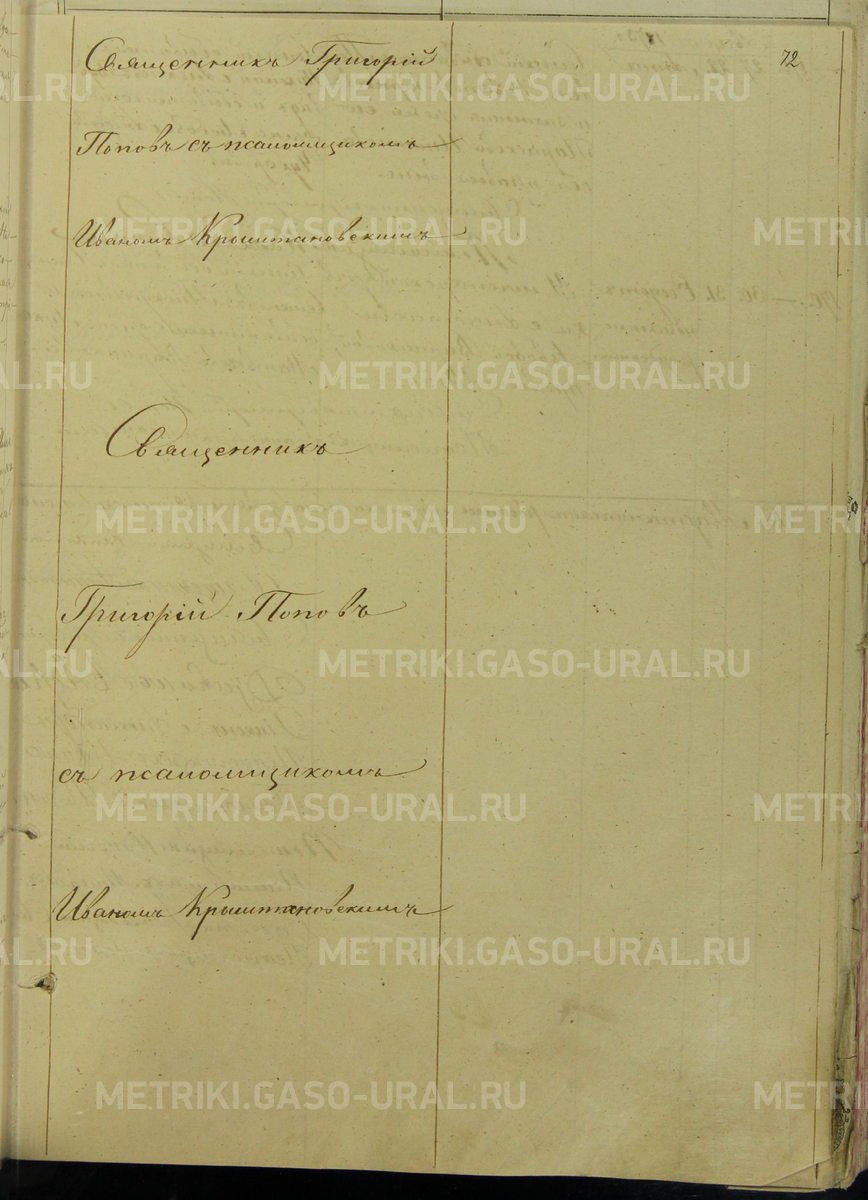 72
Священникъ Григорій
Поповъ съ псаломщикомъ
Иваномъ Крыштановскимъ
Священникъ
Григорій Поповъ
съ псаломщикомъ
Иваномъ Крыштановскимъ
METRIKI.GASO-URAL.RU